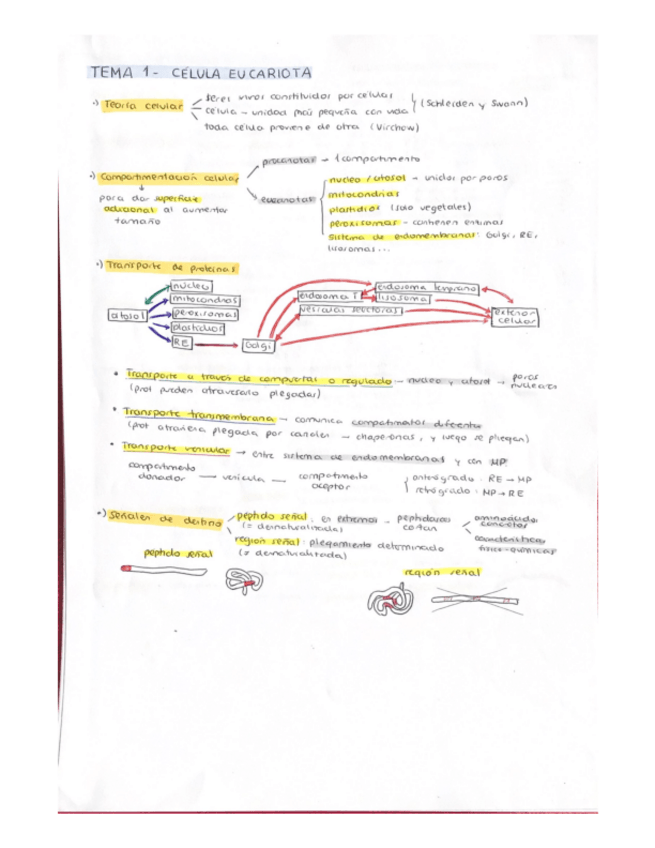 TEMA 1 - CÉLULA EUCARIOTA
·) Teoría celular
seres vivos constituidos por células
célula - unidad más pequeña con vida
(Schleiden y Swann)
toda célula proviene de otra (Virchow)
·) Compartimentación celular
procariotas → 1 compartimento
eucariotas
para dar superficie
adicional al aumentar
tamaño
núcleo / citosol → unidos por poros
mitocondrias
plastidios (solo vegetales)
peroxisomas - contienen enzimas
sistema de endomembranas: Golgi, RE,
lisosomas...
·) Transporte de proteínas
citosol
núcleo
mitocondrias
peroxisomas
plastidios
RE
Golgi
endosoma T
endosoma temprano
lisosoma
vesículas secretoras
exterior
celular
• Transporte a través de compuertas o regulado - núcleo y citosol → poros
nucleares
(prot pueden atravesarlo plegadas)
• Transporte transmembrana → comunica compartimentos diferentes
(prot atraviesa plegada por canales → chaperonas, y luego se pliegan)
• Transporte vesicular → entre sistema de endomembranas y con MP
compartimento
donador → vesícula → compartimento
aceptor
anterógrado: RE → MP
retrógrado: MP → RE
·) Señales de destino
péptido señal: en extremos → peptidasas
cortan
(= desnaturalizada)
aminoácidos
concretos
características
físico-químicas
región señal: plegamiento determinado
(≠ desnaturalizada)
péptido señal
región señal